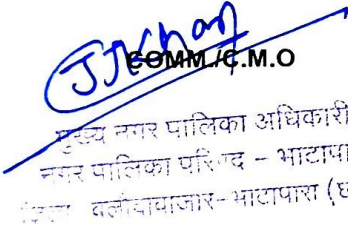 COMM./C.M.O
मुख्य नगर पालिका अधिकारी
नगर पालिका परिषद – भाटापा
बलौदाबाजार-भाटापारा (छ